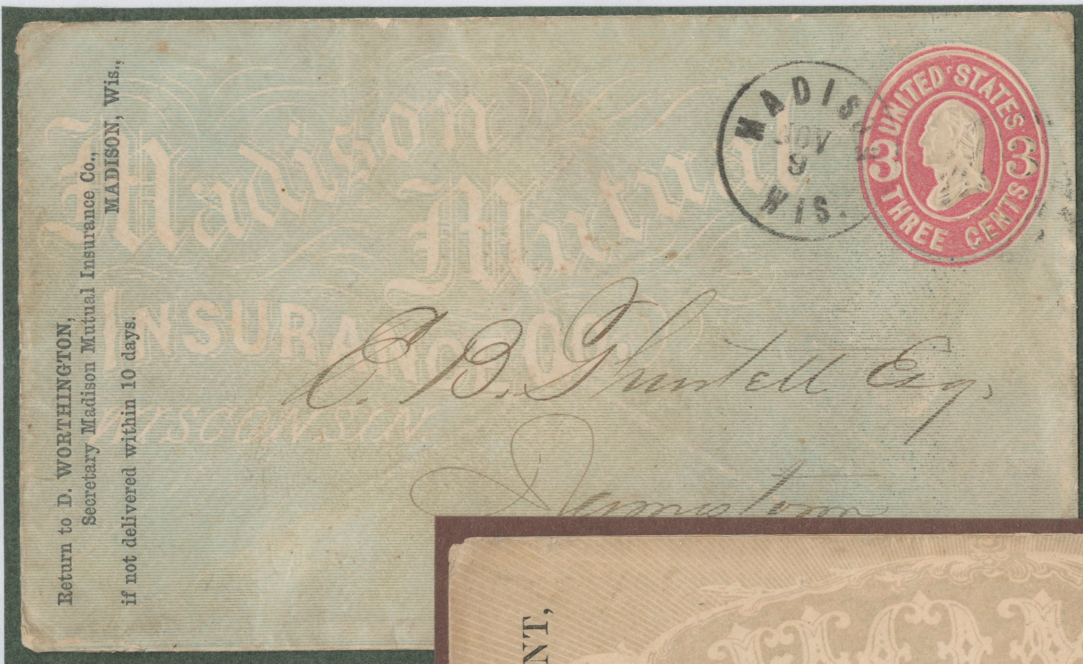 Return to D. WORTHINGTON,
Secretary Madison Mutual Insurance Co.,
MADISON, Wis.,
if not delivered within 10 days.
Madison
Mutual
INSURANCE CO.
WISCONSIN
MADISON
NOV
9
WIS.
UNITED STATES
3 3
THREE CENTS
C. B. Esq.
NT,